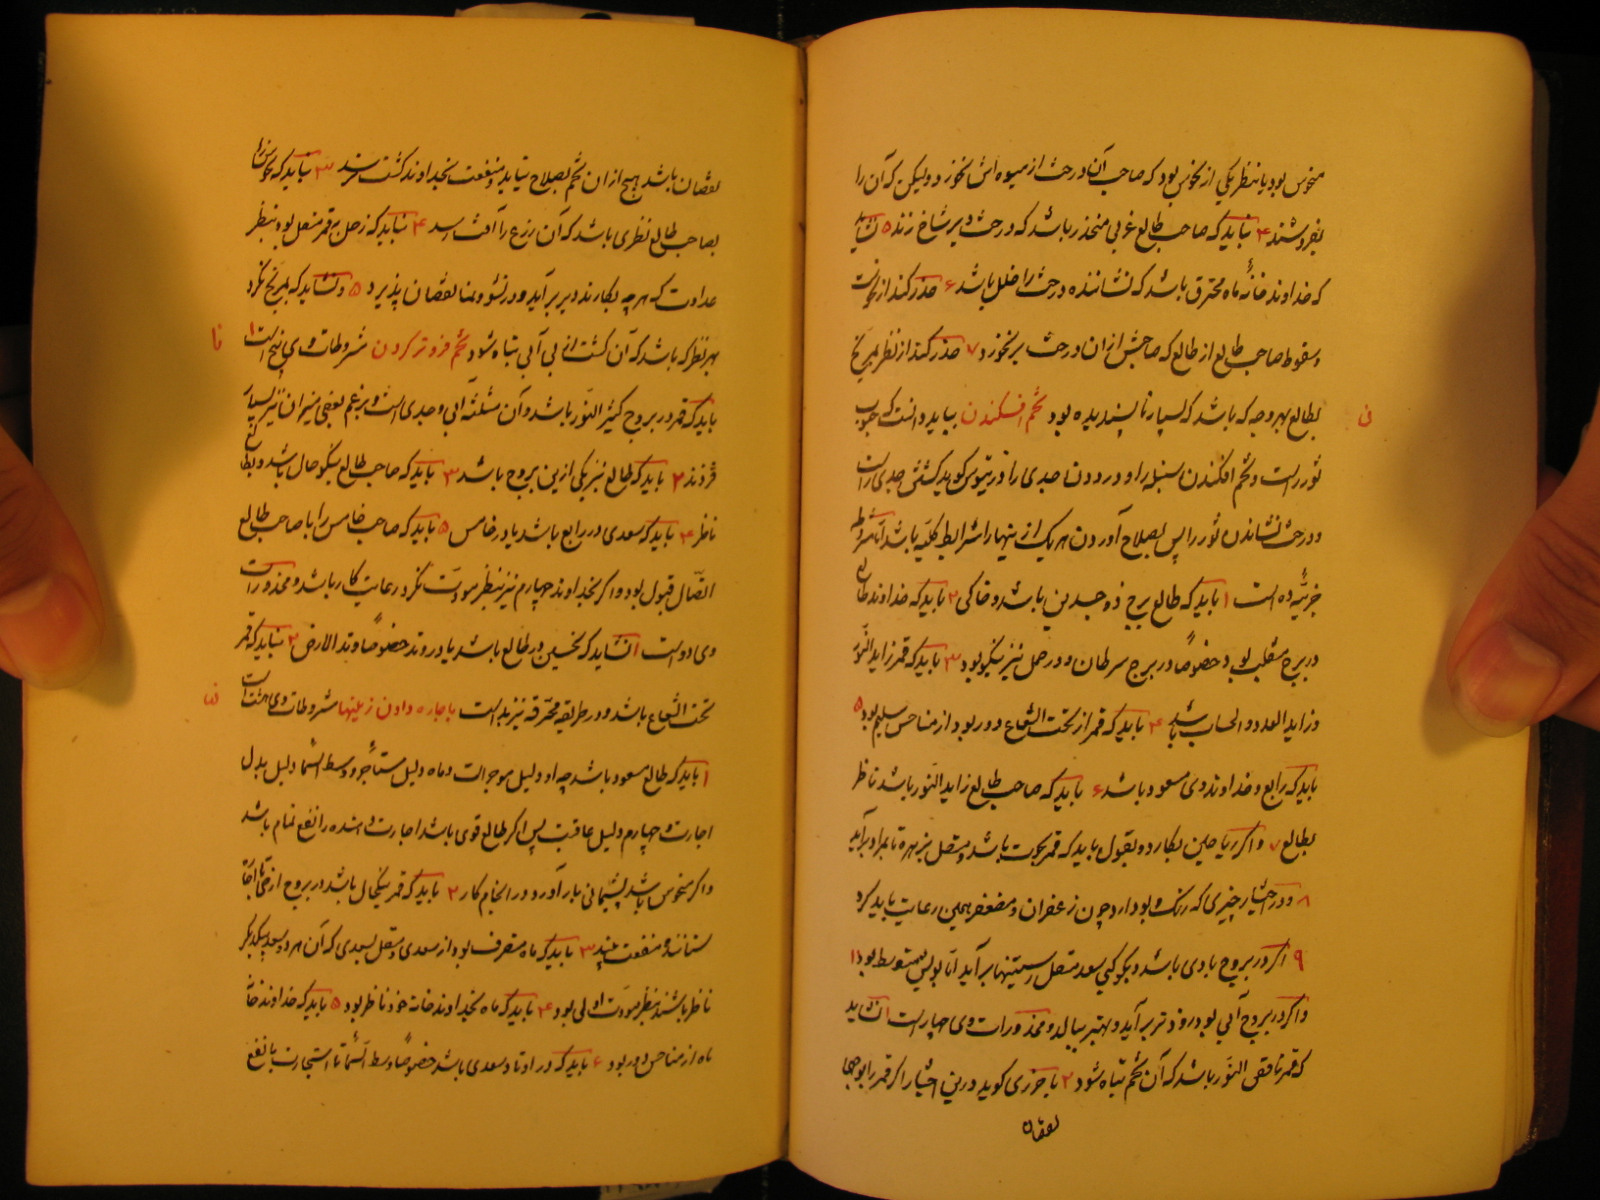 منحوس بود یا بنظر یکی از نحوس بود که صاحب آن درخت از میوه اش نخورد ولیکن که آن را
بفروشند ۴ نباید که صاحب طالع غربی منحدر باشد که درخت دیر شاخ زند ۵ نشاید
که خداوند خانهٔ ماه محترق باشد که نشاننده درخت را خلل باشد ۶ حذر کند از نحوست
و سقوط صاحب طالع از طالع که صاحبش از ان درخت بر نخورد ۷ حذر کند از نظر مریخ
بطالع بهر وجه که باشد که بسیار ناپسندیده بود تخم افکندن بباید دانست که حبوب
ن
ثور راست و تخم افکندن سنبله را و درودن جدی را و رتیوس کوید کشتن جدی راست
و درخت نشاندن ثور را پس بصلاح آوردن هر یک از ینها را شرایط کلیه باشد اما شروط
جزئیه ده است ۱ باید که طالع برج ذوجسدین باشد و خاکی ۲ باید که خداوند طالع
در برج منقلب بود خصوصاً در برج سرطان و در حمل نیز نیکو بود ۳ باید که قمر زاید النور
و زاید العدد و الحساب باشد ۴ باید که قمر از تحت الشعاع دور بود از مناحس سلیم بود ۵
باید که رابع و خداوند وی مسعود باشد ۶ باید که صاحب طالع زاید النور باشد ناظر
بطالع ۷ و اگر ریاحین بکارد و بقول باید که قمر بحوت باشد و متصل بزهره تا بمراد برآید
۸ و در اختیار چیزی که رنک و بو دارد چون زعفران و معصفر همین رعایت باید کرد
۹ اگر در بروج بادی باشد و بکوکبی سعد متصل رستنیها برآید اما بو لیس متوسط بود ۱۰
و اگر در بروج آبی بود زودتر برآید و بهتر ببالد و محذورات وی چهار است ۱ نشاید
که قمر ناقص النور باشد که آن تخم تباه شود ۲ باخرزی کوید درین اختیار اگر قمر را بوجهی
نقصان
نقصان باشد هیچ از ان تخم بصلاح نیاید و منفعت بخداوند کشت نرسد ۳ نباید که نحوس را
بصاحب طالع نظری باشد که آن زرع را آفت رسد ۴ نباید که زحل بر قمر متصل بود بنظر
عداوت که هرچه بکارند دیر برآید و در نشو و نما نقصان پذیرد ۵ و نشاید که بمریخ نکرد
بهر نظر که باشد که آن کشت از بی آبی تباه شود تخم فروتر کردن مشروطات وی پنج است ۱
نا
باید که قمر در بروج کثیر النور باشد و آن مثلثه آبی و جدی است و بزعم بعضی میزان نیز بسیار
فرزند ۲ باید که طالع نیز یکی ازین بروج باشد ۳ باید که صاحب طالع نیکو حال باشد و بطالع
ناظر ۴ باید که سعدی در رابع باشد یا در خامس ۵ باید که صاحب خامس را با صاحب طالع
اتصال قبول بود و اگر بخداوند چهارم نیز بنظر مودت نکرد رعایت کار باشد و محذورات
وی دو است ۱ نشاید که نحسین در طالع باشد یا در وتد خصوصاً وتد الارض ۲ نباید که قمر
تحت الشعاع باشد و در طریقه محترقه نیز بد است باجاره دادن زمینها مشروطات وی هشت است
نب
۱ باید که طالع مسعود باشد چه او دلیل موجر است و ماه دلیل مستأجر و وسط السما دلیل بدل
اجارت و چهارم دلیل عاقبت پس اگر طالع قوی باشد اجارت دهنده را نفع تمام باشد
و اگر منحوس باشد پشیمانی بار آورد در انجام کار ۲ باید که قمر نیکحال باشد در بروج ارضی تا اجارت
ستاننده منفعت بیند ۳ باید که ماه منصرف بود از سعدی و متصل بسعدی که آن هر دو سعد بیکدیگر
ناظر باشند بنظر مودت اولی بود ۴ باید که ماه بخداوند خانه خود ناظر بود ۵ باید که خداوند خانه
ماه از مناحس دور بود ۶ باید که در اوتاد سعدی باشد خصوصاً وسط السما تا استیجارت با نفع